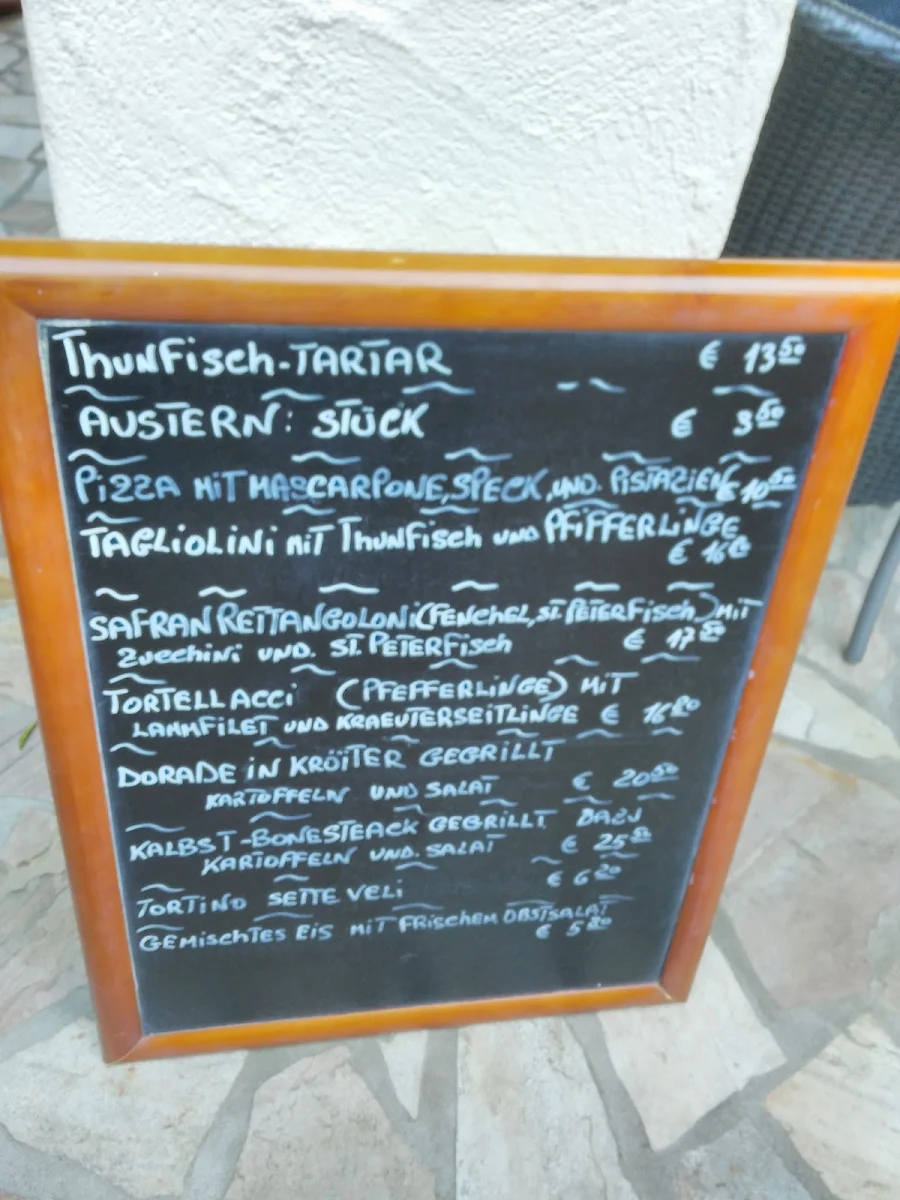 THUNFISCH-TARTAR € 13 50
AUSTERN: STÜCK € 3 50
PIZZA MIT MASCARPONE, SPECK, UND. PISTAZIEN € 10 50
TAGLIOLINI MIT THUNFISCH UND PFIFFERLINGE
€ 16
SAFRAN RETTANGOLONI (FENCHEL, ST. PETERFISCH) MIT
ZUCCHINI UND. ST. PETERFISCH € 17 50
TORTELLACCI (PFEFFERLINGE) MIT
LAMMFILET UND KRAEUTERSEITLINGE € 16 80
DORADE IN KRÖITER GEGRILLT
KARTOFFELN UND SALAT € 20 50
KALBS T-BONESTEACK GEGRILLT DAZU
KARTOFFELN UND. SALAT € 25 50
€ 6 20
TORTINO SETTE VELI
GEMISCHTES EIS MIT FRISCHEM OBSTSALAT
€ 5 80